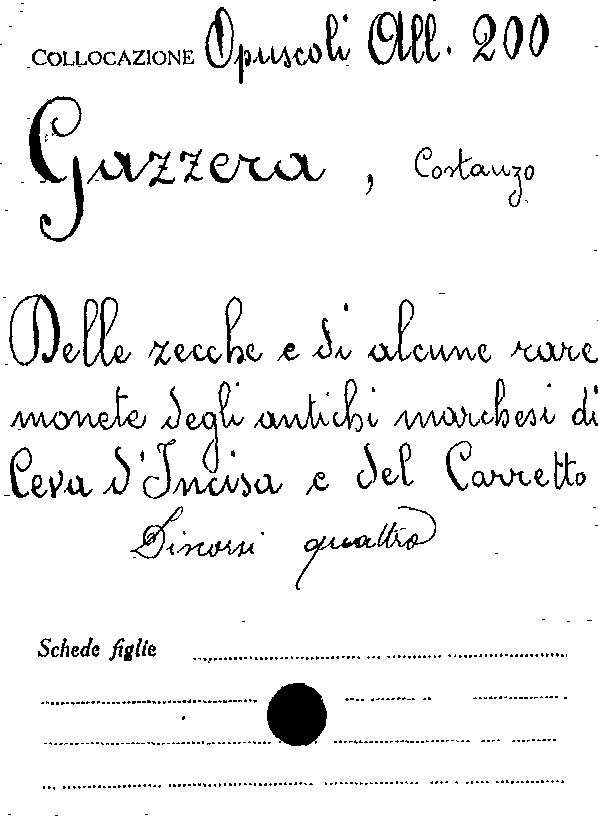 COLLOCAZIONE Opuscoli All. 200
Gazzera, Costanzo
Delle zecche e di alcune rare
monete degli antichi marchesi di
Ceva d'Incisa e del Carretto
Discorsi quattro
Schede figlie